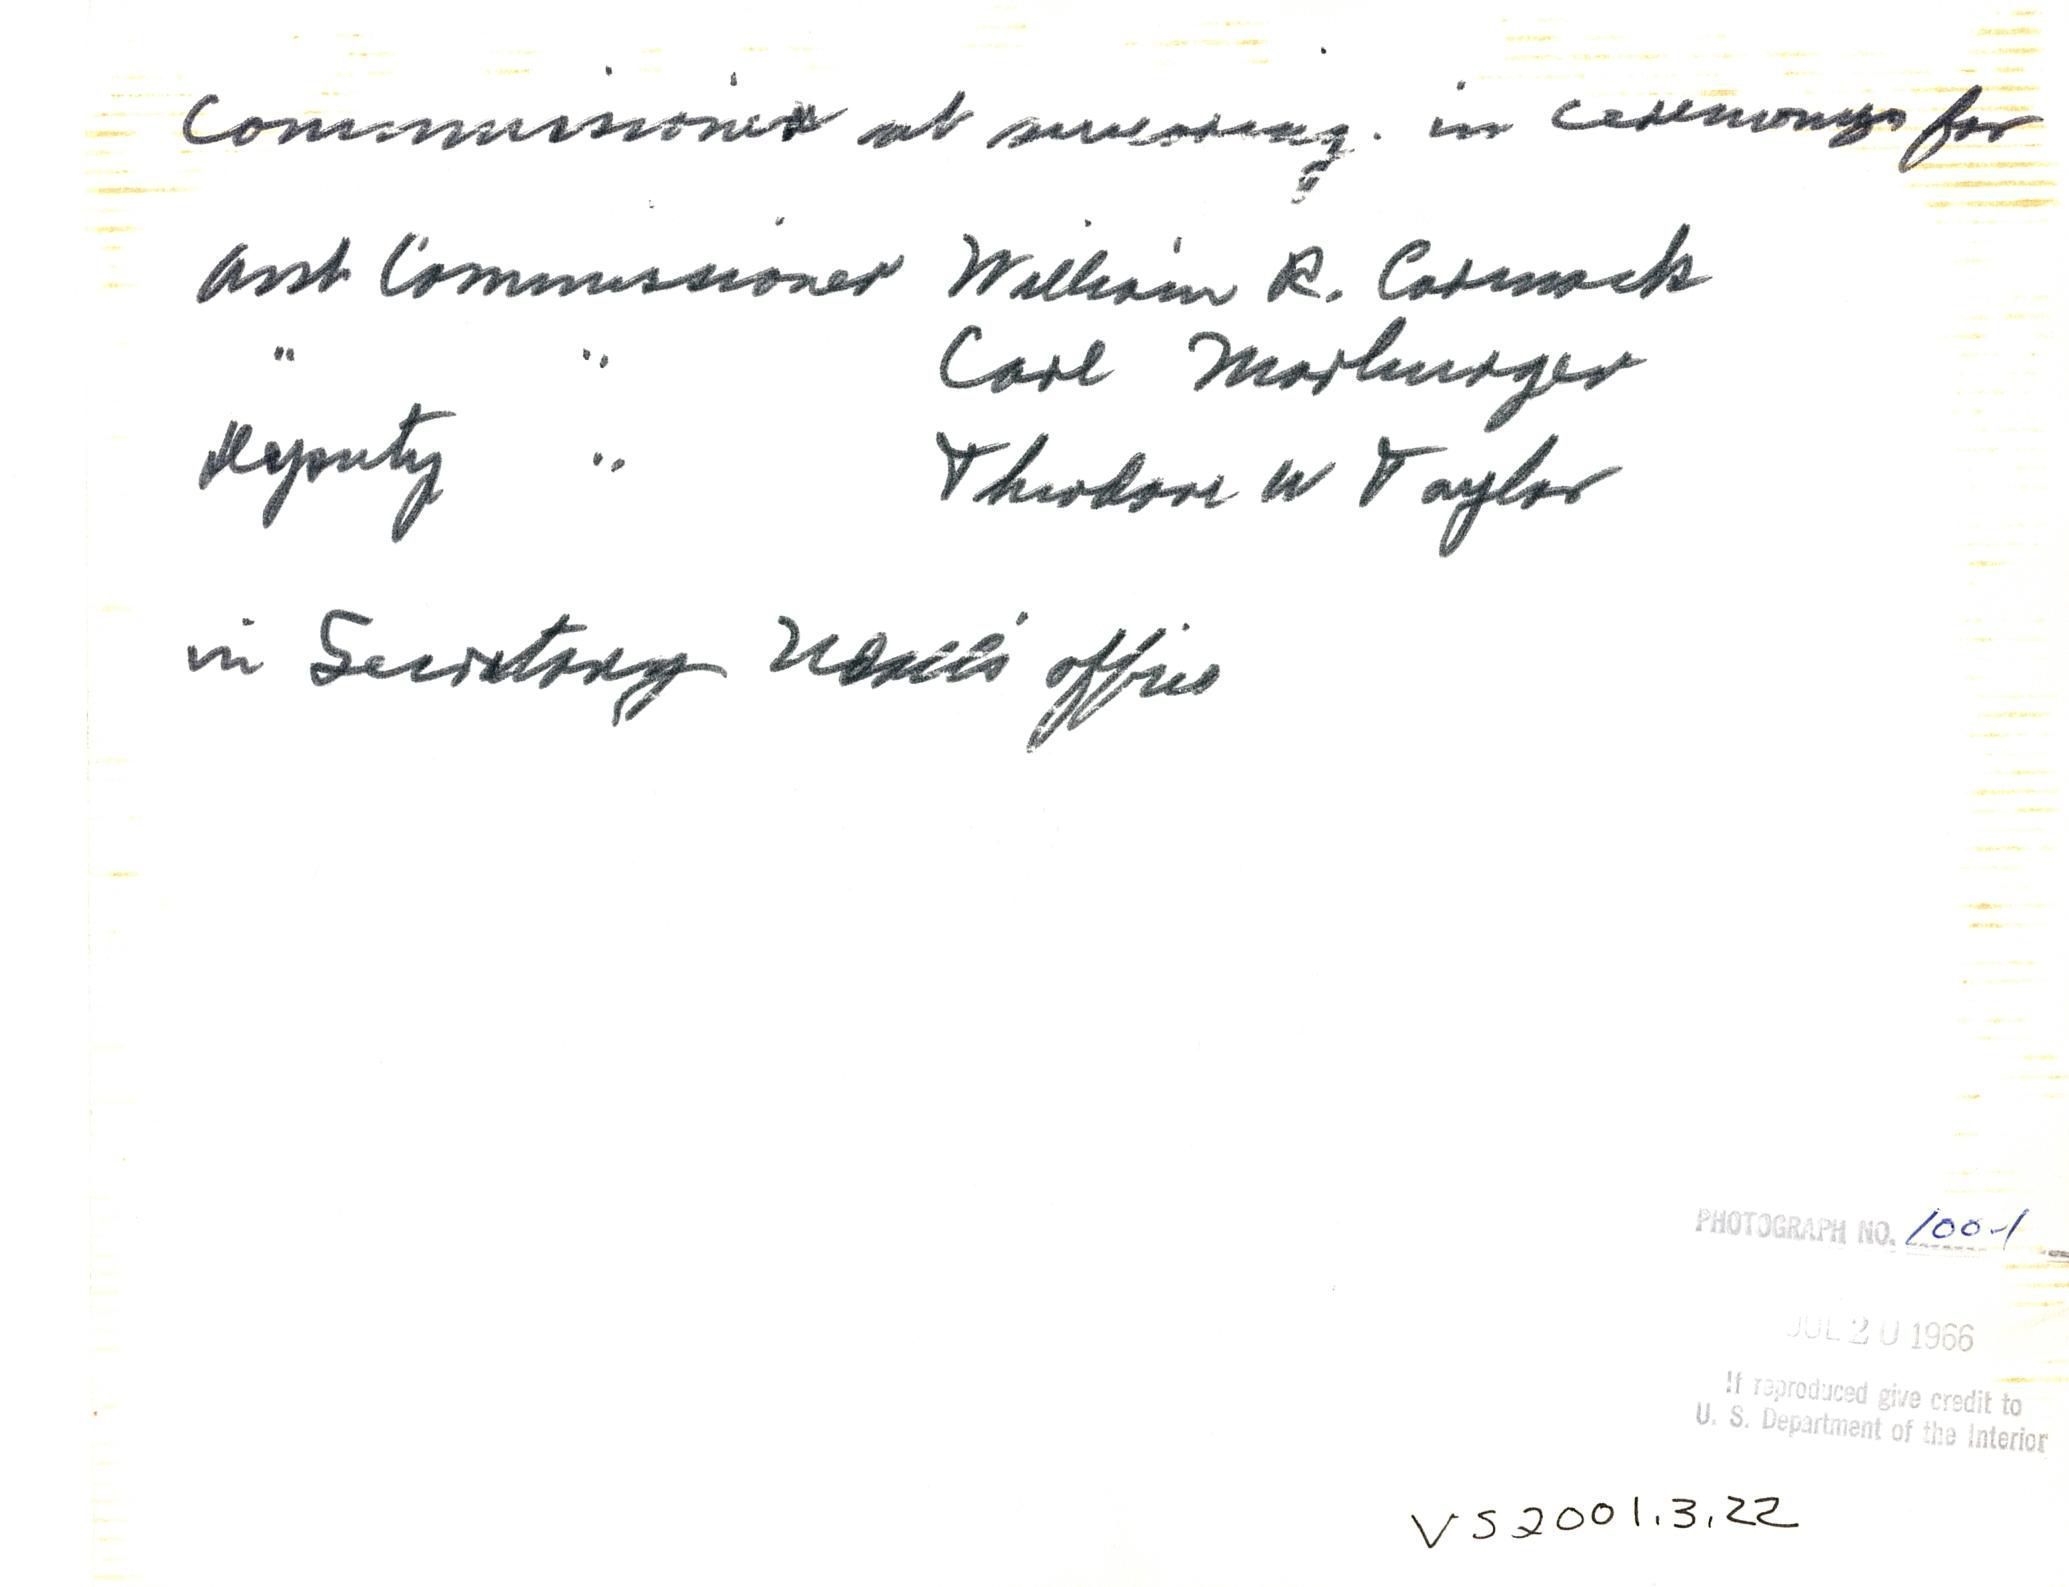 Commissioner at swearing. in ceremonys for
Asst Commissioner William R. Carmack
" " Carl Marburger
Deputy " Theodore W Taylor
in Secretary Udall's office
PHOTOGRAPH NO. 100-1
JUL 20 1966
If reproduced give credit to
U. S. Department of the Interior
VS2001.3.22